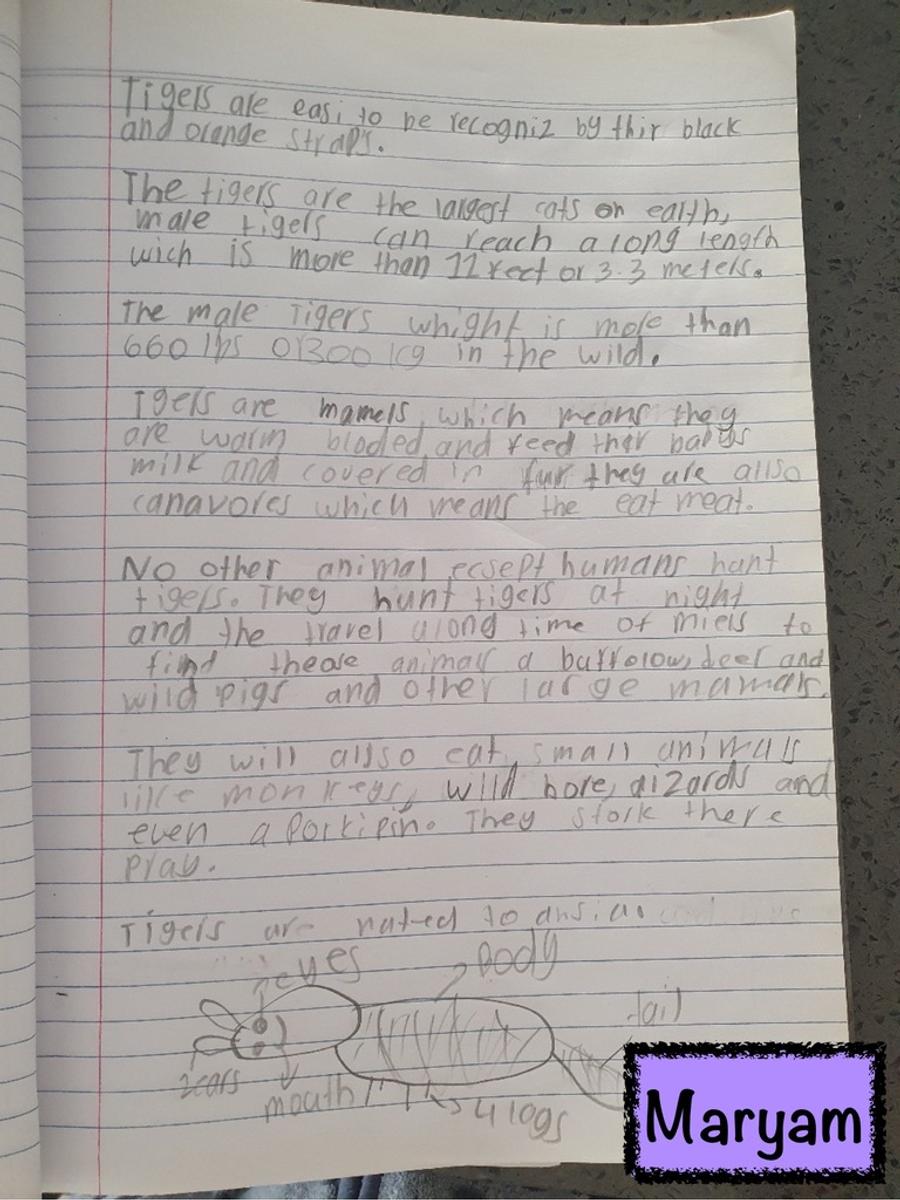 Tigers are easi to be recogniz by thir black
and orange straps.
The tigers are the largest cats on earth,
male tigers can reach a long length
wich is more than 11 feet or 3.3 meters.
The male Tigers whight is more than
660 lbs or 300 kg in the wild.
Tgers are mamels, which means they
are warm bloded, and feed ther babys
milk and covered in fur they are allso
canavores which means the eat meat.
No other animal ecsept humans hunt
tigers. They hunt tigers at night
and the travel along time of miels to
find theose animals a buffolow, deer and
wild pigs and other large mamals.
They will allso eat small animals
like monkeys, wild bore, lizards and
even a Porkipin. They stork there
pray.
Tigers are nated to
eyes
body
tail
2 ears
mouth
4 legs
Maryam